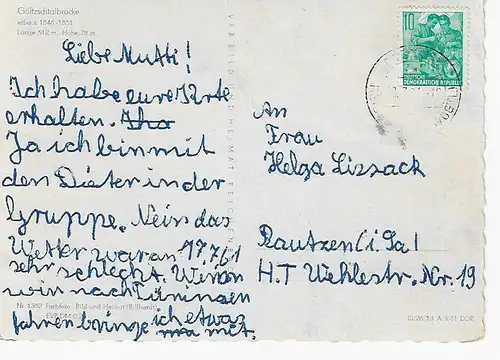 Göltzschtalbrücke
erbaut 1846-1851
Länge 512 m, Höhe 78 m
Liebe Mutti!
Ich habe eure Karte
erhalten. Iha
Ja ich bin mit
den Dieter in der
Gruppe. Nein das
Wetter war an 17.7.61
sehr schlecht. Wen
wir nach Türingen
fahren bringe ich etwas
ma mit.
Nr. 1382 Farbfoto: Bild und Heimat
EVP DM
VERLAG BILD UND HEIMAT REICHENBACH
10
DEUTSCHE
DEMOKRATISCHE REPUBLIK
An
Frau
Helga Lissack
Bautzen (i. Sa!
H.T Wehlestr. Nr. 19
A 3/61 DDR